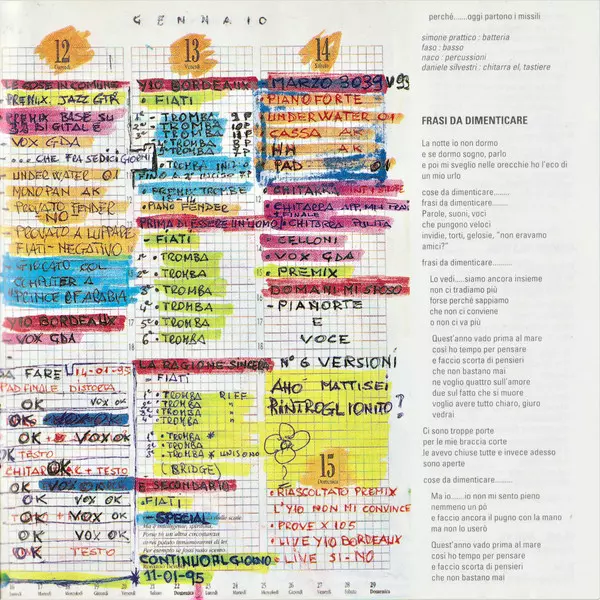 GENNAIO
12
E COSE IN COMUNE
PREMIX. JAZZ GTR
PREMIX BASE SU
32 DIGITALE
VOX GDA
...CHE FRA SEDICI GIORNI
UNDER WATER 01
MONOPAN AK
PROVATO FENDER
NO
PROVATO A LUPPARE
FIATI - NEGATIVO
GIOCATO COL
COMPUTER A
PRINCE OF ARABIA
Y10 BORDEAUX
VOX GDA
DA FARE 14-01-95
PAD FINALE, DISTORTA
OK VOX OK
OK
OK VOX OK
OK TESTO
CHITAR + TESTO
OK
OK VOX OK
OK VOX OK
VOX OK
OK VOX OK
OK TESTO
13
Venerdì
Y10 BORDEAUX
• FIATI
1° - TROMBA
TROMBA
TROMBA
TROMBA
• TROMBA INIZIO
FINO A 2° INCISO
• PREMIX TROMBE
• PIANO FENDER
PRIMA DI ESSERE UN UOMO
- FIATI
1° • TROMBA
2° TROMBA
3° TROMBA
4° TROMBA
5° TROMBA
6° TROMBA
LA RAGIONE SINCERA
- FIATI
1° • TROMBA RIFF
2° TROMBA "
3° TROMBA "
4° TROMBA "
1° • TROMBA *
2° • TROMBA * UNISONO
(BRIDGE)
E SECONDARIO
• FIATI
- SPECIAL
CONTINUO AL GIORNO
11-01-95
14
Sabato
MARZO 3039 V93
PIANOFORTE
UNDERWATER 01
CASSA AK
HH AK
PAD 01
• CHITARRA
• CHITARRA
FINALE
CHITARRA PULITA
• CELLONI
• VOX GDA
• PREMIX
DOMANI MI SPOSO
- PIANORTE
E
VOCE
N° 6 VERSIONI
AHÓ MATTISEI
RINTROGLIONITO?
15
Domenica
• RIASCOLTATO PREMIX
L'Y10 NON MI CONVINCE
• PROVE X 105
• LIVE Y10 BORDEAUX
• LIVE SI - NO
22 23 24 25 26 27 28 29
Domenica Lunedì Martedì Mercoledì Giovedì Venerdì Sabato Domenica
perché......oggi partono i missili
simone prattico : batteria
faso : basso
naco : percussioni
daniele silvestri : chitarra el, tastiere
FRASI DA DIMENTICARE
La notte io non dormo
e se dormo sogno, parlo
e poi mi sveglio nelle orecchie ho l'eco di
un mio urlo
cose da dimenticare.......
frasi da dimenticare.......
Parole, suoni, voci
che pungono veloci
invidie, torti, gelosie, "non eravamo
amici?"
frasi da dimenticare.......
Lo vedi.....siamo ancora insieme
non ci tradiamo più
forse perché sappiamo
che non ci conviene
o non ci va più
Quest'anno vado prima al mare
così ho tempo per pensare
e faccio scorta di pensieri
che non bastano mai
ne voglio quattro sull'amore
due sul fatto che si muore
voglio avere tutto chiaro, giuro
vedrai
Ci sono troppe porte
per le mie braccia corte
le avevo chiuse tutte e invece adesso
sono aperte
cose da dimenticare.......
Ma io......io non mi sento pieno
nemmeno un pò
e faccio ancora il pugno con la mano
ma non lo userò
Quest'anno vado prima al mare
così ho tempo per pensare
e faccio scorta di pensieri
che non bastano mai